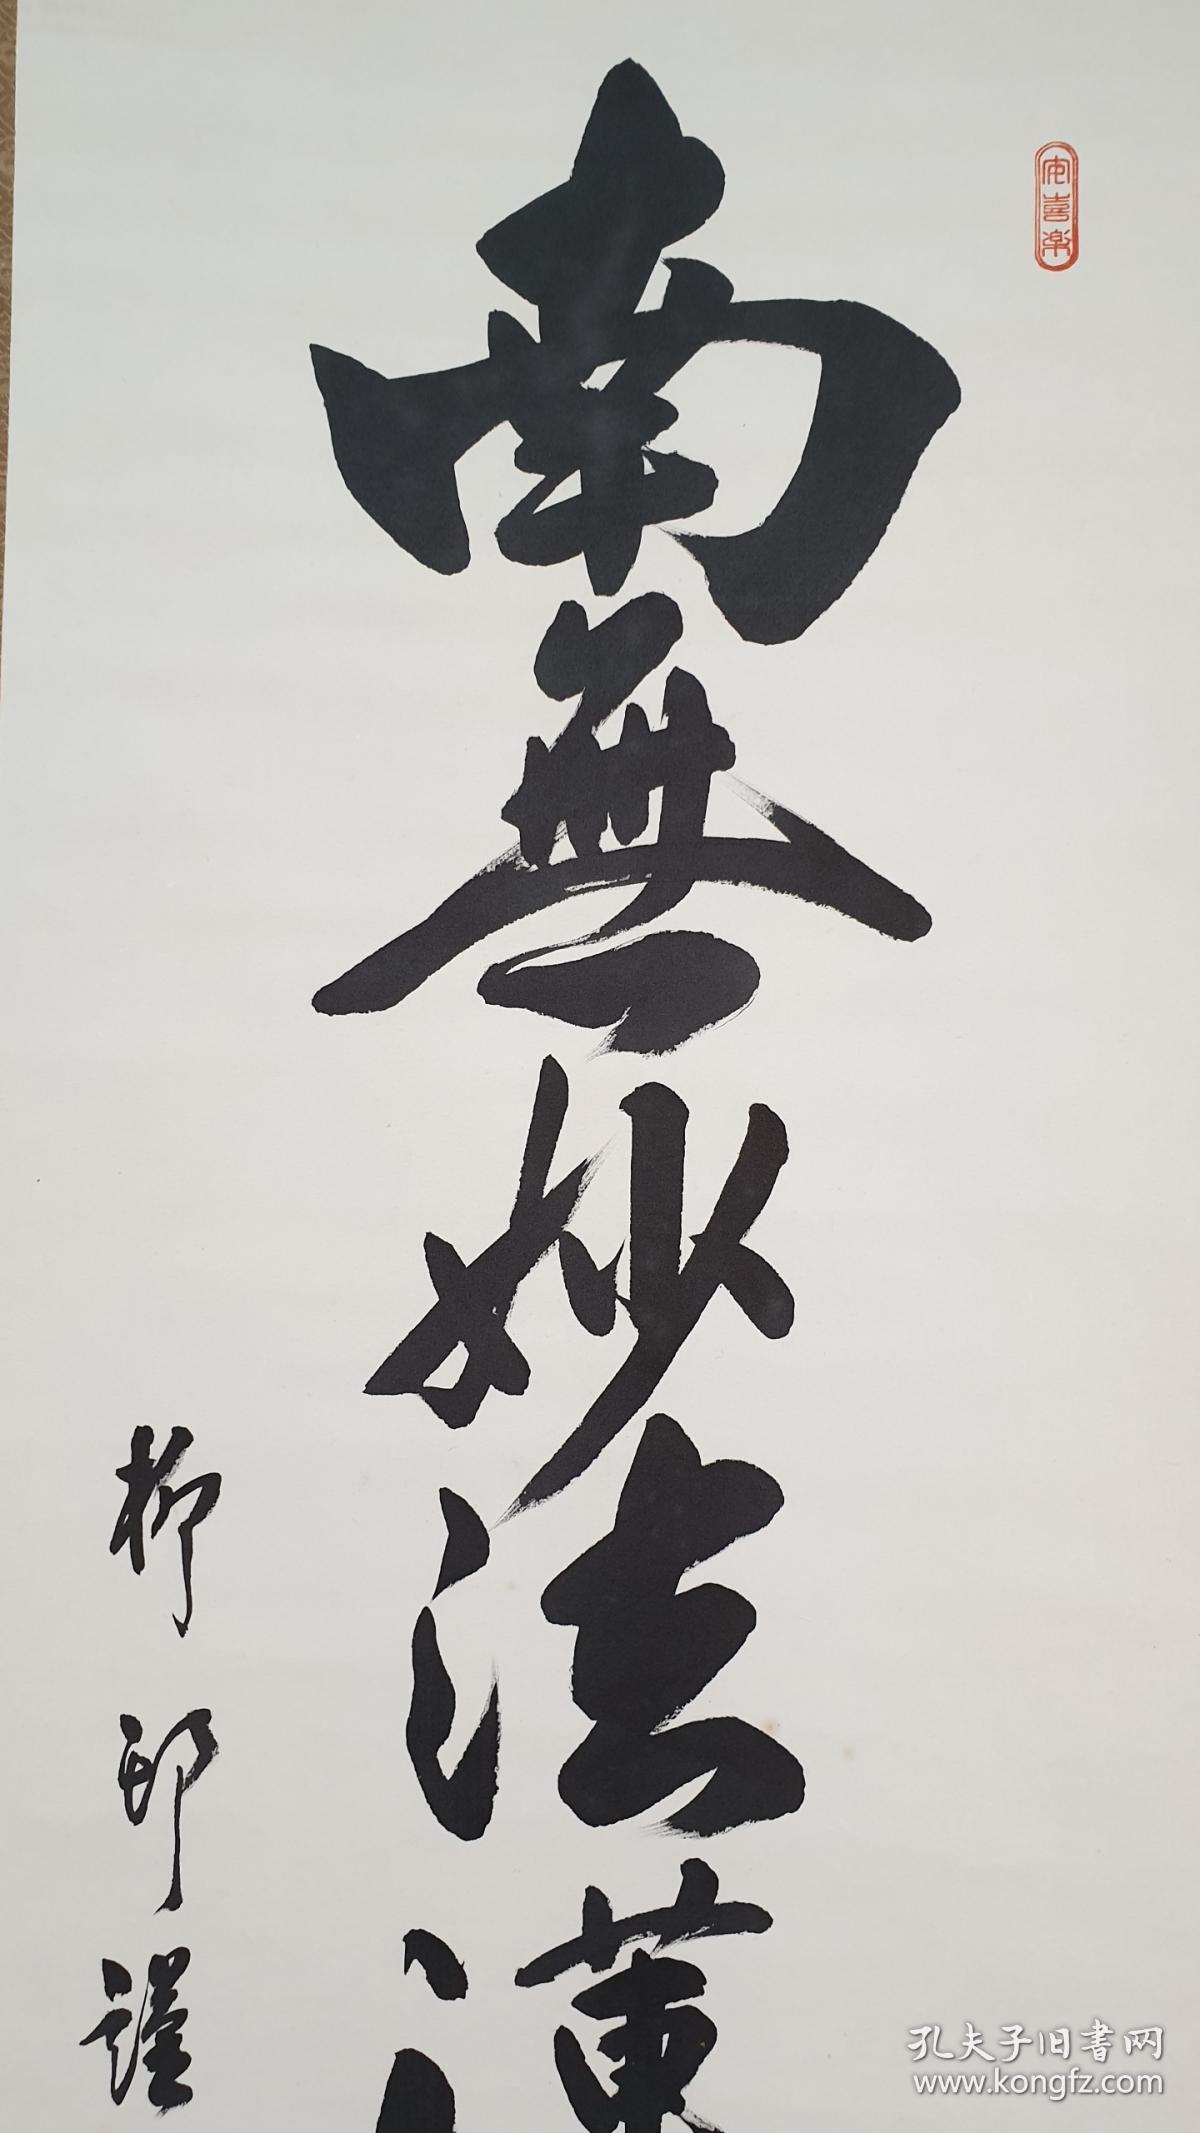 安喜楽
南無妙法蓮
柳邨謹
孔夫子旧书网
www.kongfz.com